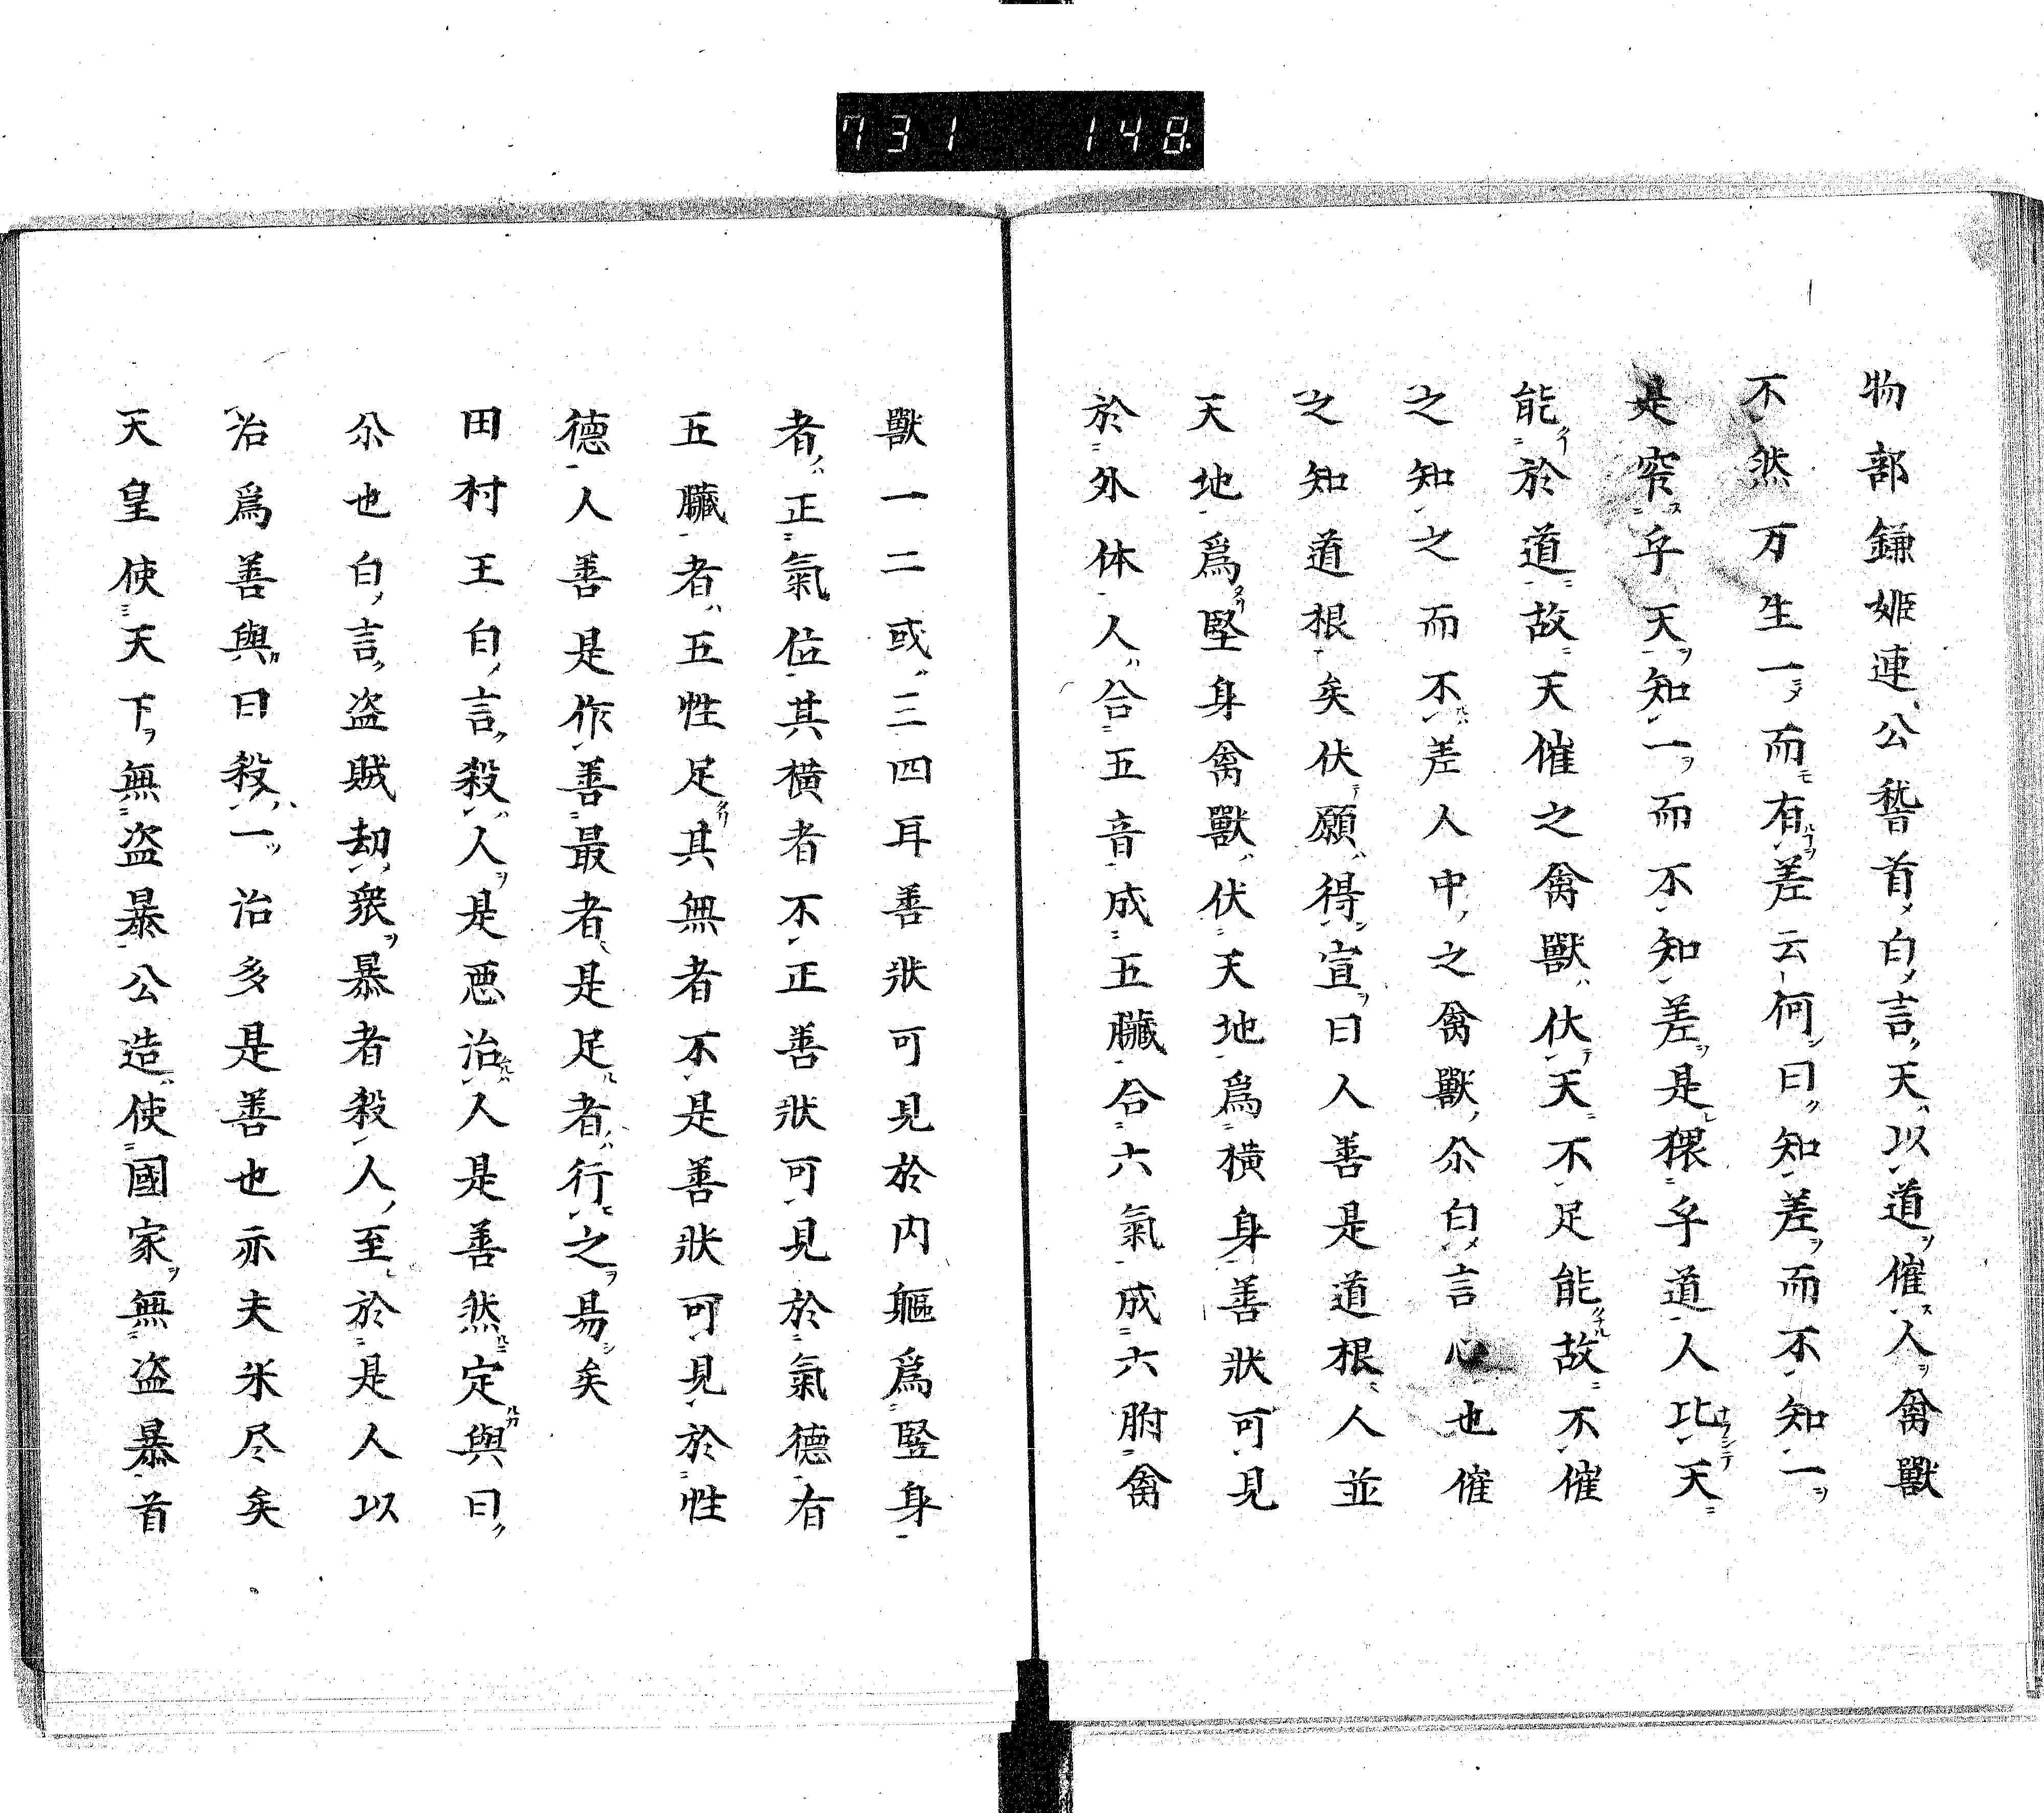 731 148
物部鎌姬連公嵆首白言天以道催人禽獸
不然万生一而有差云何曰知差而不知一
是窄乎天知一而不知差是猥乎道人比天
能於道故天催之禽獸伏天不足能故不催
之知之而不差人中之禽獸尒白言心也催
之知道根矣伏願得宣曰人善是道根人並
天地爲堅身禽獸伏天地爲横身善狀可見
於外体人合五音成五臓合六氣成六腑禽
獸一二或三四耳善狀可見於内軀爲竪身
者正氣位其横者不正善狀可見於氣德有
五臓者五性足其無者不是善狀可見於性
德人善是作善最者是足者行之易矣
田村王白言殺人是悪治人是善然定與曰
尒也白言盗賊劫衆暴者殺人至於是人以
治爲善與曰殺一治多是善也亦夫米尽矣
天皇使天下無盗暴公造使國家無盗暴首